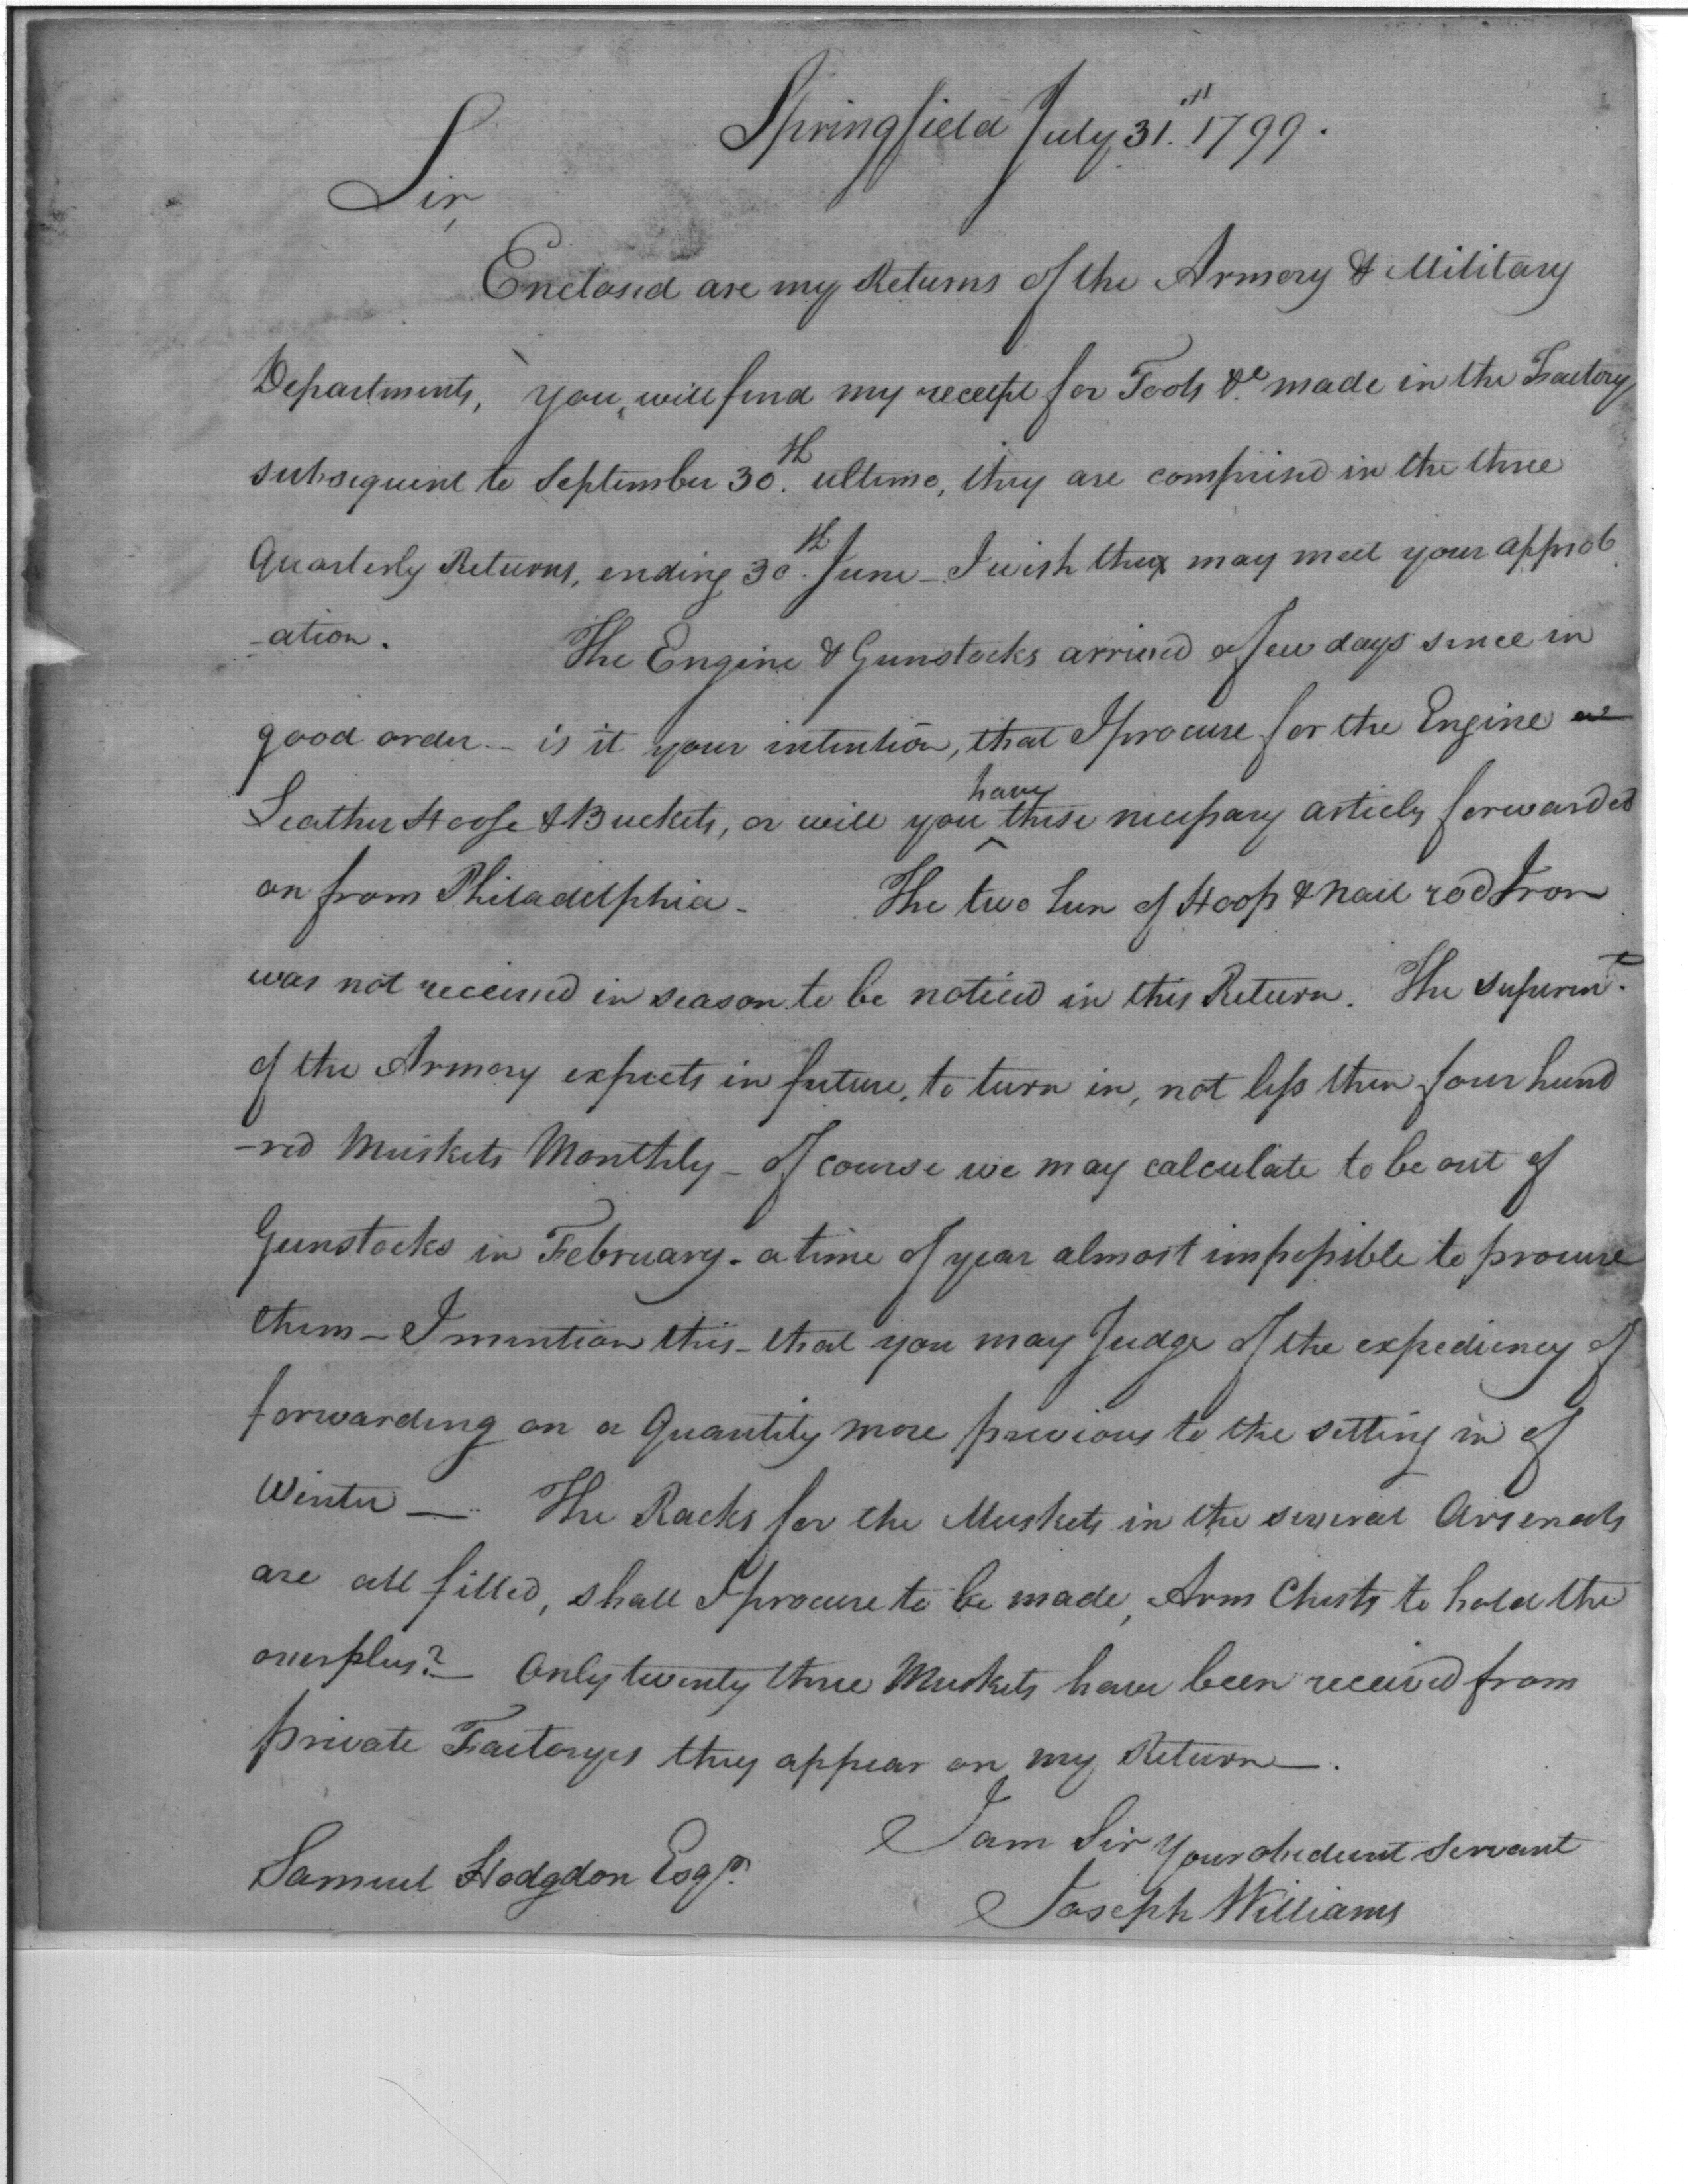 Springfield July 31.st 1799.
Sir,
Enclosed are my Returns of the Armory & Military
Departments, you, will find my receipt for Tools &c. made in the Factory
subsequent to September 30.th ultimo, they are comprised in the three
Quarterly Returns, ending 30.th June - I wish they may meet your approb
-ation. The Engine & Gunstocks arrived a few days since in
good order - is it your intention, that I procure for the Engine
Leather Hoose & Buckets, or will you have these necessary articles forwarded
on from Philadelphia - The two Tun of Hoop & Nail rod Iron
was not received in season to be noticed in this Return. The Superint.
of the Armory expects in future, to turn in, not less then four hund
-red Muskets Monthly - of course we may calculate to be out of
Gunstocks in February - a time of year almost impossible to procure
them - I mention this - that you may Judge of the expediency of
forwarding on a Quantity more previous to the setting in of
Winter - The Racks for the Muskets in the several Arsenals
are all filled, shall I procure to be made, Arm Chests to hold the
overplus? - Only twenty three Muskets have been received from
private Factoryes they appear on my Return -.
I am Sir Your obedient Servant
Samuel Hodgdon Esqr.
Joseph Williams